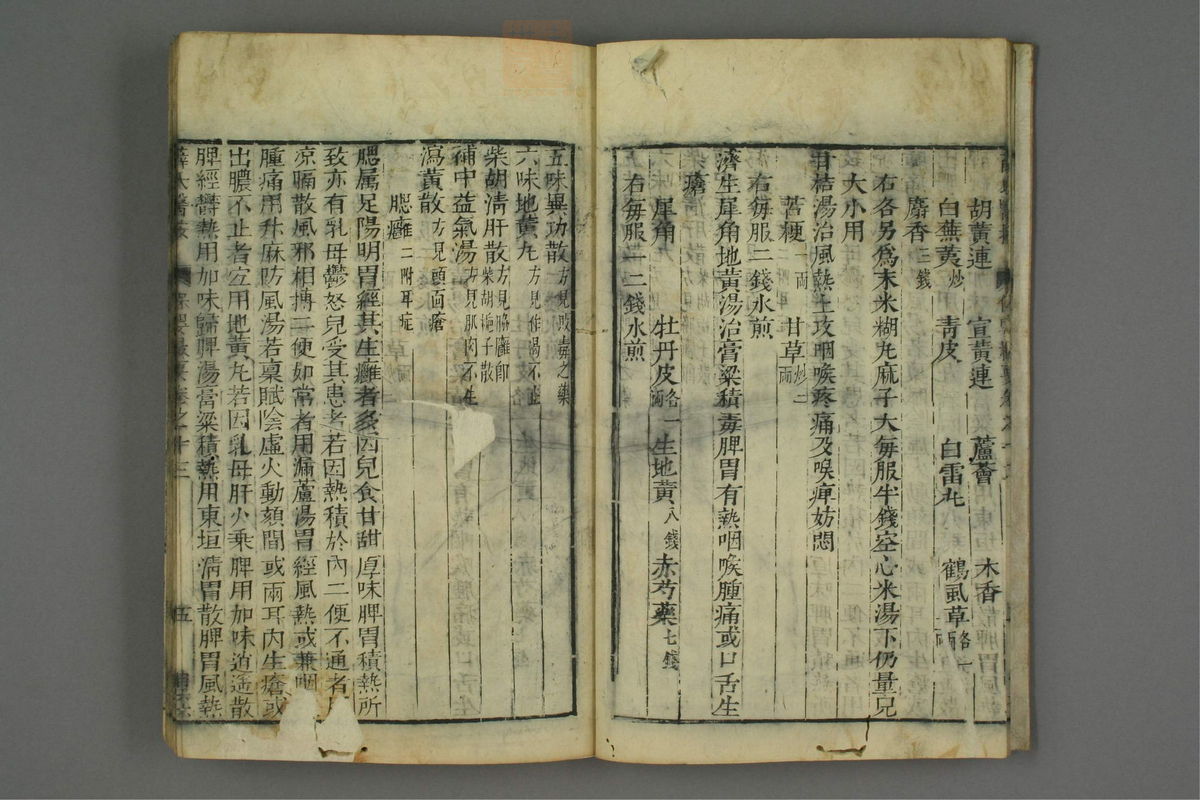 胡黃連　宣黃連　蘆薈　木香
白蕪荑炒　青皮　白雷丸　鶴虱草各一兩
麝香三錢
右各另爲末米糊丸麻子大每服半錢空心米湯下仍量兒
大小用
甘桔湯治風熱上攻咽喉疼痛及喉痺妨悶
苦梗一兩　甘草炒二兩
右每服二錢水煎
濟生犀角地黃湯治膏粱積毒脾胃有熱咽喉腫痛或口舌生
瘡
犀角　牡丹皮各一兩　生地黃八錢　赤芍藥七錢
右每服一二錢水煎
五味異功散方見敗毒之藥
六味地黃丸方見作渴不止
柴胡清肝散方見脇癰卽柴胡梔子散
補中益氣湯方見肌肉不生
瀉黃散方見頭面瘡
腮癰二附耳症
腮屬足陽明胃經其生癰者多因兒食甘甜厚味脾胃積熱所
致亦有乳母鬱怒兒受其患者若因熱積於內二便不通者用
凉膈散風邪相搏二便如常者用漏蘆湯胃經風熱或兼咽
腫痛用升麻防風湯若稟賦陰虛火動頦間或兩耳內生瘡或
出膿不止者宜用地黃丸若因乳母肝火乘脾用加味逍遙散
脾經鬱熱用加味歸脾湯膏粱積熱用東垣清胃散脾胃風熱
薛氏醫案　保嬰撮要卷之十三　五